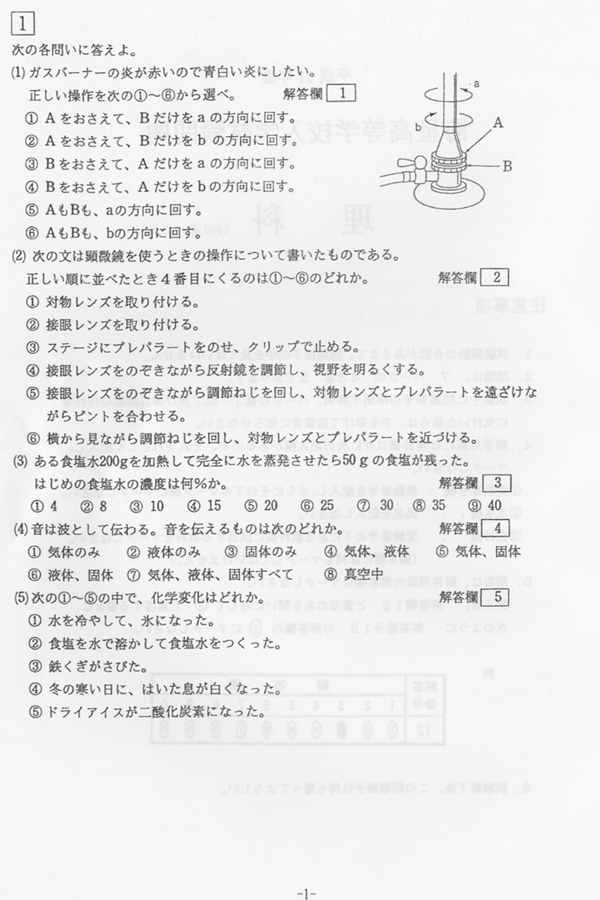 1
次の各問いに答えよ。
(1) ガスバーナーの炎が赤いので青白い炎にしたい。
正しい操作を次の①～⑥から選べ。 解答欄 1
① Aをおさえて、Bだけをaの方向に回す。
② Aをおさえて、Bだけをbの方向に回す。
③ Bをおさえて、Aだけをaの方向に回す。
④ Bをおさえて、Aだけをbの方向に回す。
⑤ AもBも、aの方向に回す。
⑥ AもBも、bの方向に回す。
a
b
A
B
(2) 次の文は顕微鏡を使うときの操作について書いたものである。
正しい順に並べたとき４番目にくるのは①～⑥のどれか。 解答欄 2
① 対物レンズを取り付ける。
② 接眼レンズを取り付ける。
③ ステージにプレパラートをのせ、クリップで止める。
④ 接眼レンズをのぞきながら反射鏡を調節し、視野を明るくする。
⑤ 接眼レンズをのぞきながら調節ねじを回し、対物レンズとプレパラートを遠ざけな
がらピントを合わせる。
⑥ 横から見ながら調節ねじを回し、対物レンズとプレパラートを近づける。
(3) ある食塩水200gを加熱して完全に水を蒸発させたら50ｇの食塩が残った。
はじめの食塩水の濃度は何％か。 解答欄 3
① 4 ② 8 ③ 10 ④ 15 ⑤ 20 ⑥ 25 ⑦ 30 ⑧ 35 ⑨ 40
(4) 音は波として伝わる。音を伝えるものは次のどれか。 解答欄 4
① 気体のみ ② 液体のみ ③ 固体のみ ④ 気体、液体 ⑤ 気体、固体
⑥ 液体、固体 ⑦ 気体、液体、固体すべて ⑧ 真空中
(5) 次の①～⑤の中で、化学変化はどれか。 解答欄 5
① 水を冷やして、氷になった。
② 食塩を水で溶かして食塩水をつくった。
③ 鉄くぎがさびた。
④ 冬の寒い日に、はいた息が白くなった。
⑤ ドライアイスが二酸化炭素になった。
-1-